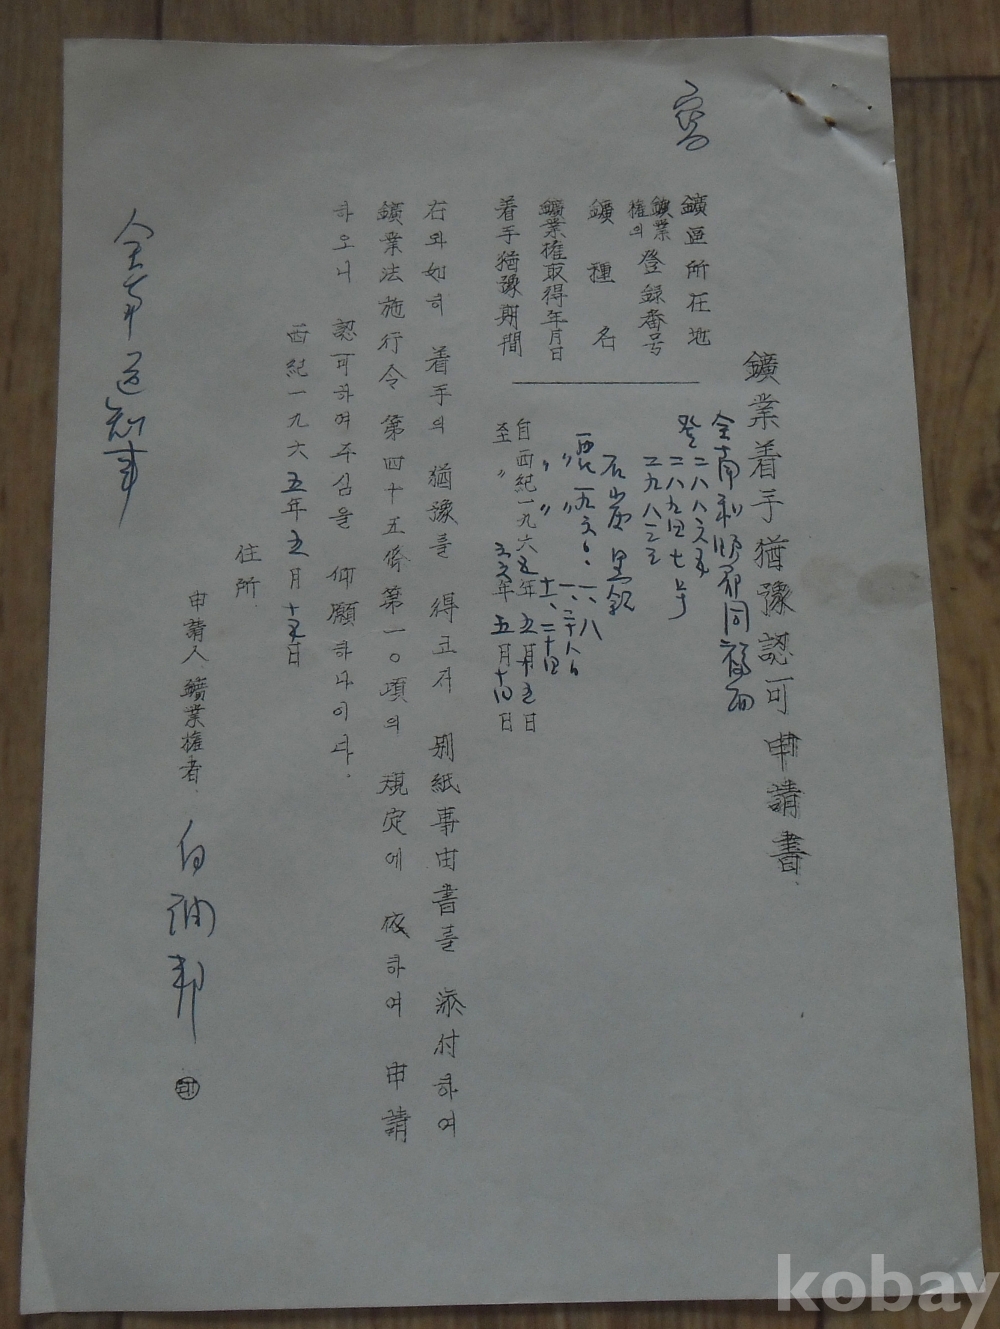 鑛業着手猶豫認可申請書
鑛區所在地 全南和順郡同福面
鑛業權의 登録番号 登二八八六五
二八九四七号
二九八三五
鑛種名 石炭 黒鉛
鑛業權取得年月日
着手猶豫期間 自西紀一九六五年五月 日
至〃 年五月 日
右와如히 着手의 猶豫를 得코저 別紙事由書를 添付하여
鑛業法施行令第四十五條第一〇項의 規定에 依하여 申請
하오니 認可하여주심을 仰願하나이다.
西紀一九六五年五月十五日
住所.
申請人.鑛業權者.白 邦 ㊞
道知事
kobay